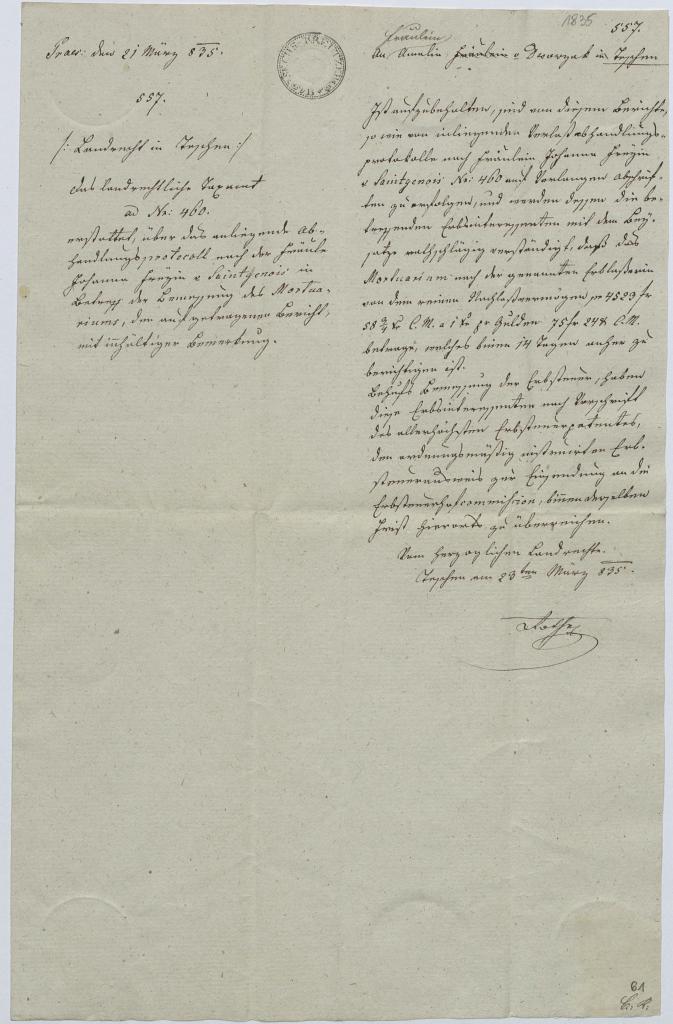 Praes: den 21 März 835.
557.
/: Landrecht in Teschen :/
Das landrechtliche Taxamt
ad Nr: 460.
erstattet, über das anliegende Ab-
handlungsprotocoll nach der Fräule
Johanna Freyin v Saintgenois in
Betreff der Bemessung des Mortua-
riums, den aufgetragenen Bericht,
mit inhältiger Bemerkung.
SECHS KREUTZER
1835
557.
Fräulein
An Amalia Fräulein v Dworzak in Teschen
Ist aufzubehalten, sind von diesem Berichte,
so wie von inliegenden Verlaßabhandlungs-
protokolle nach Fräulein Johanna Freyin
v Saintgenois Nr: 460 auf Verlangen Abschrif-
ten zu erfolgen, und werden dessen die be-
treffenden Erbsinteressenten mit dem Bey-
satze rathschlägig verständigt, daß das
Mortuarium nach der genannten Erblasserin
von dem reinen Nachlaßvermögen pr 4523 fr
58 3/4 xr C. M. a 1 xr pr Gulden 75 fr 24 xr C. M.
betrage, welches binen 14 Tagen anher zu
berichtigen ist.
Behufs Bemessung der Erbsteuer, haben
diese Erbsinteressenten nach Vorschrift
des allerhöchsten Erbsteuerpatentes,
den ordnungsmäßig instruirten Erb-
steuerausweis zur Einsendung an die
Erbsteuerhofcommission, binnen derselben
Frist hierorts zu überreichen.
Vom herzoglichen Landrechte.
Teschen am 23ten März 835.
61